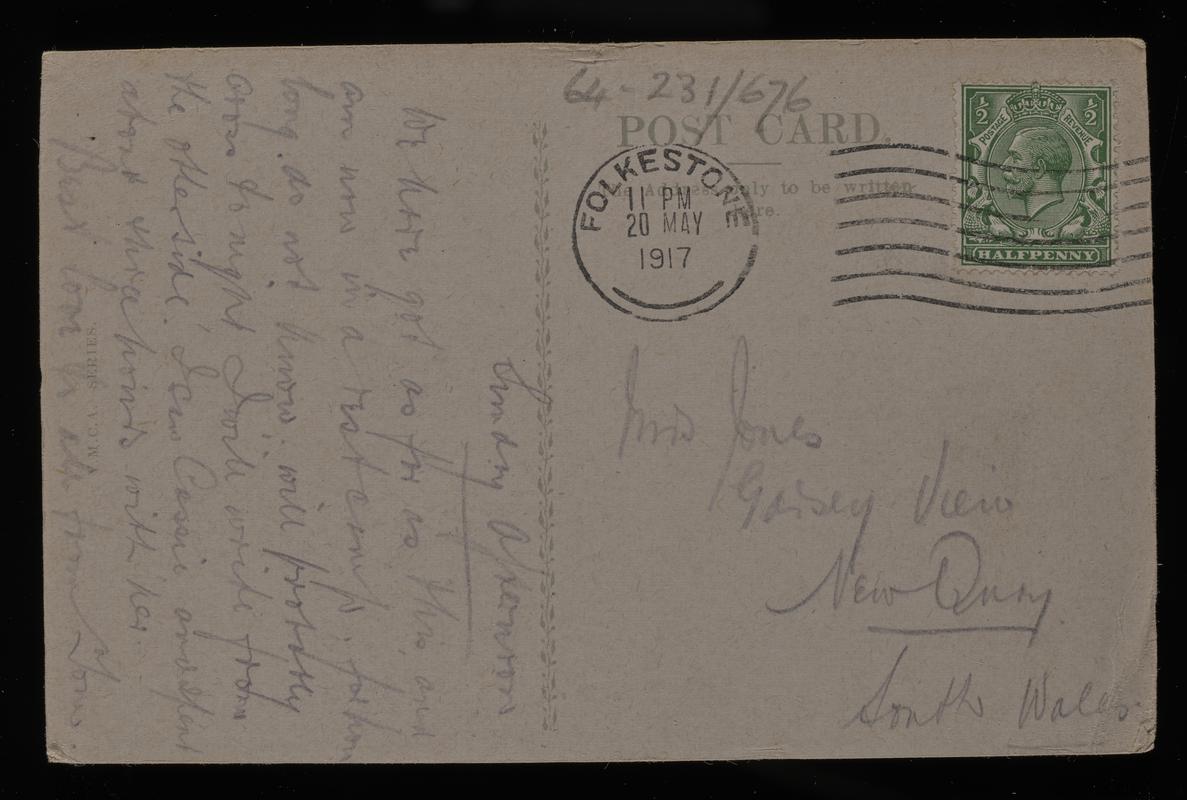 64-231/676
POST CARD.
The Address only to be written
here.
FOLKESTONE
11 PM
20 MAY
1917
½ ½
POSTAGE REVENUE
HALFPENNY
Mrs Jones
Gorsey View
New Quay
South Wales.
Sunday Afternoon
We have got as far as this, and
am now in a rest camp, for how
long do not know; will probably
cross to-night, I will write from
the otherside. I saw Cassie and spent
about three hours with her.
Best love to all from Tom.
Y.M.C.A. SERIES.